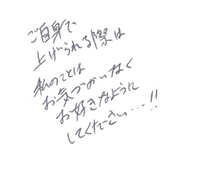 ご自身で
上げられる際は
私のことは
お気づかいなく
お好きなように
してください…!!